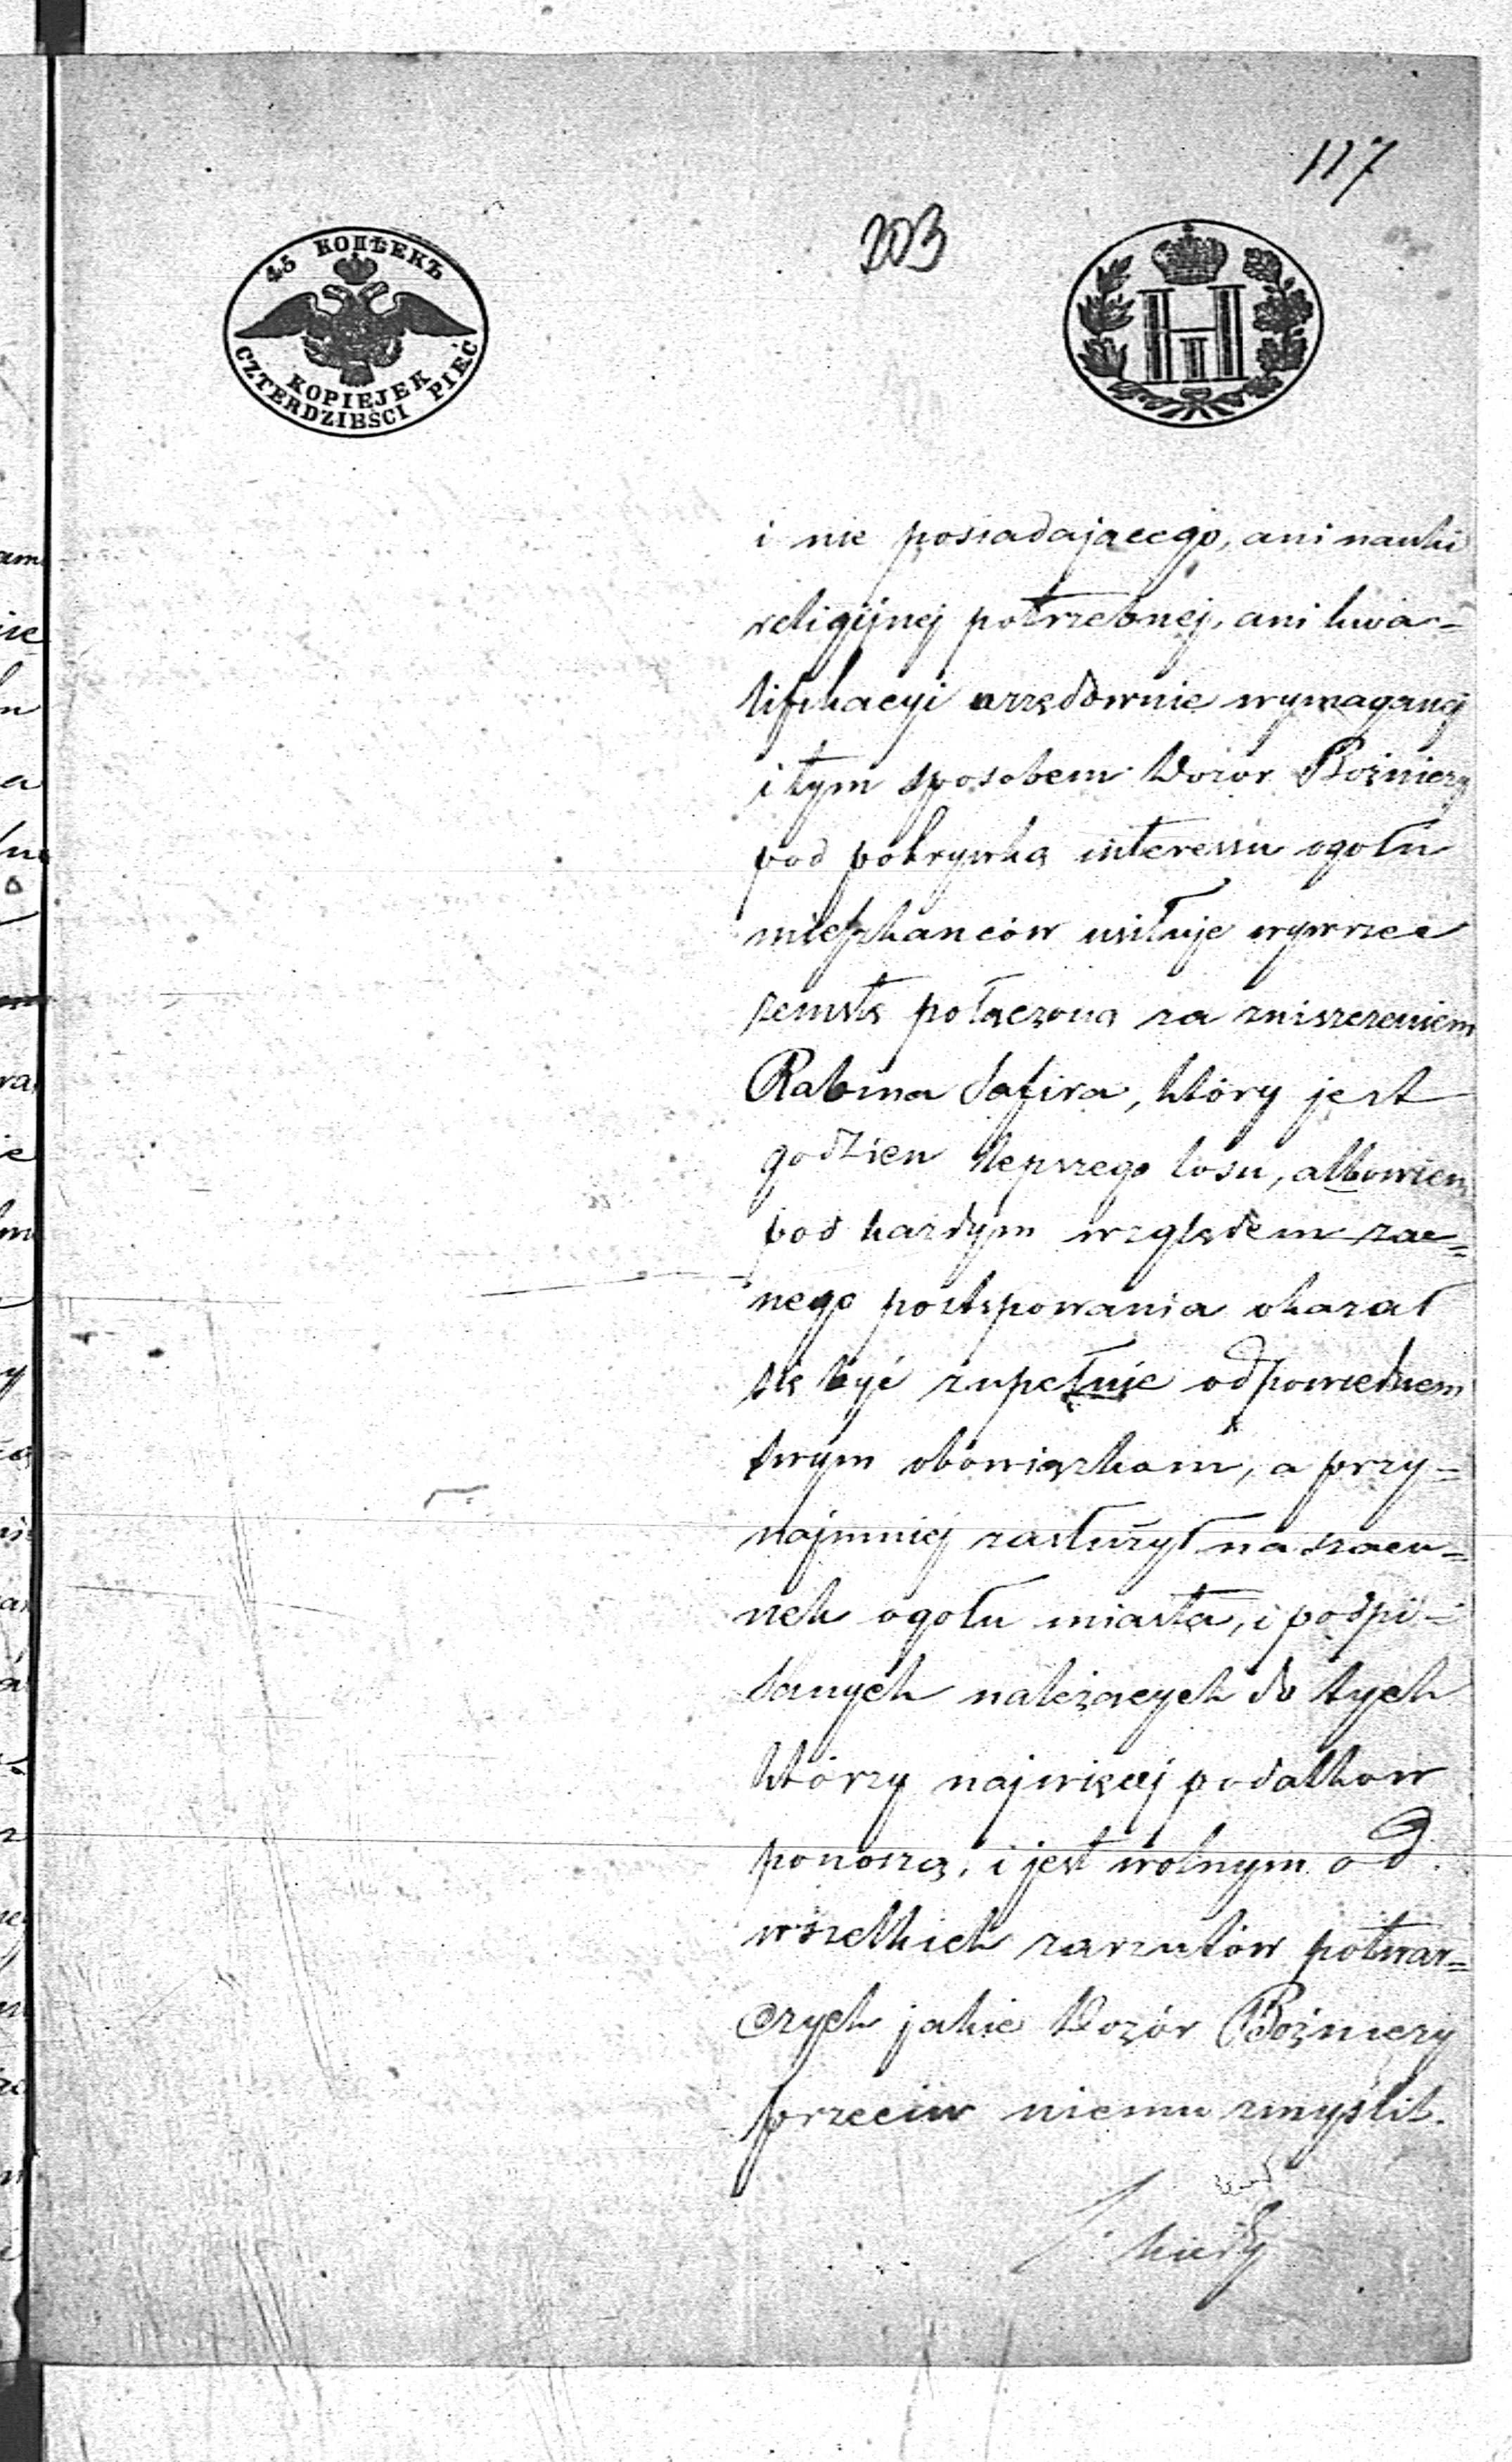 117
203
45 КОПѢЕКЪ
KOPIEJEK
CZTERDZIEŚCI PIĘĆ
H
i nie posiadającego, ani nauki
religijnej potrzebnej, ani kwa-
lifikacyi urzędownie wymaganej
i tym sposobem Dozor Bożniczy
pod pokrywką interessu ogołu
mieszkanców usiłuje wywrzeć
zemstę połączoną za zniszczeniem
Rabina Safira, który jest
godzien lepszego losu, albowiem
pod kazdym względem zac=
nego postępowania okazał
się być zupełnie odpowiednem
swym obowiązkom, a przy=
najmniej zasłużył na szacu=
nek ogołu miasta, i podpi=
sanych należących do tych
którzy najwięcej podatkow
ponoszą, i jest wolnym od
wszelkich zarzutów potwar=
czych jakie Dozór Bożniczy
przeciw niemu zmyślił.
kiedy